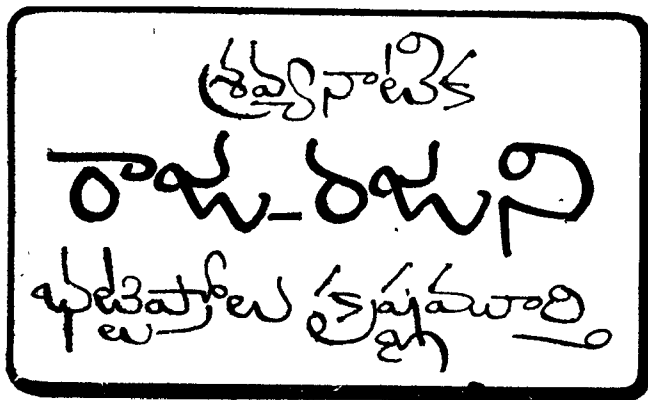 శ్రవ్యనాటిక
రాజు-రజని
భట్టిప్రోలు కృష్ణమూర్తి